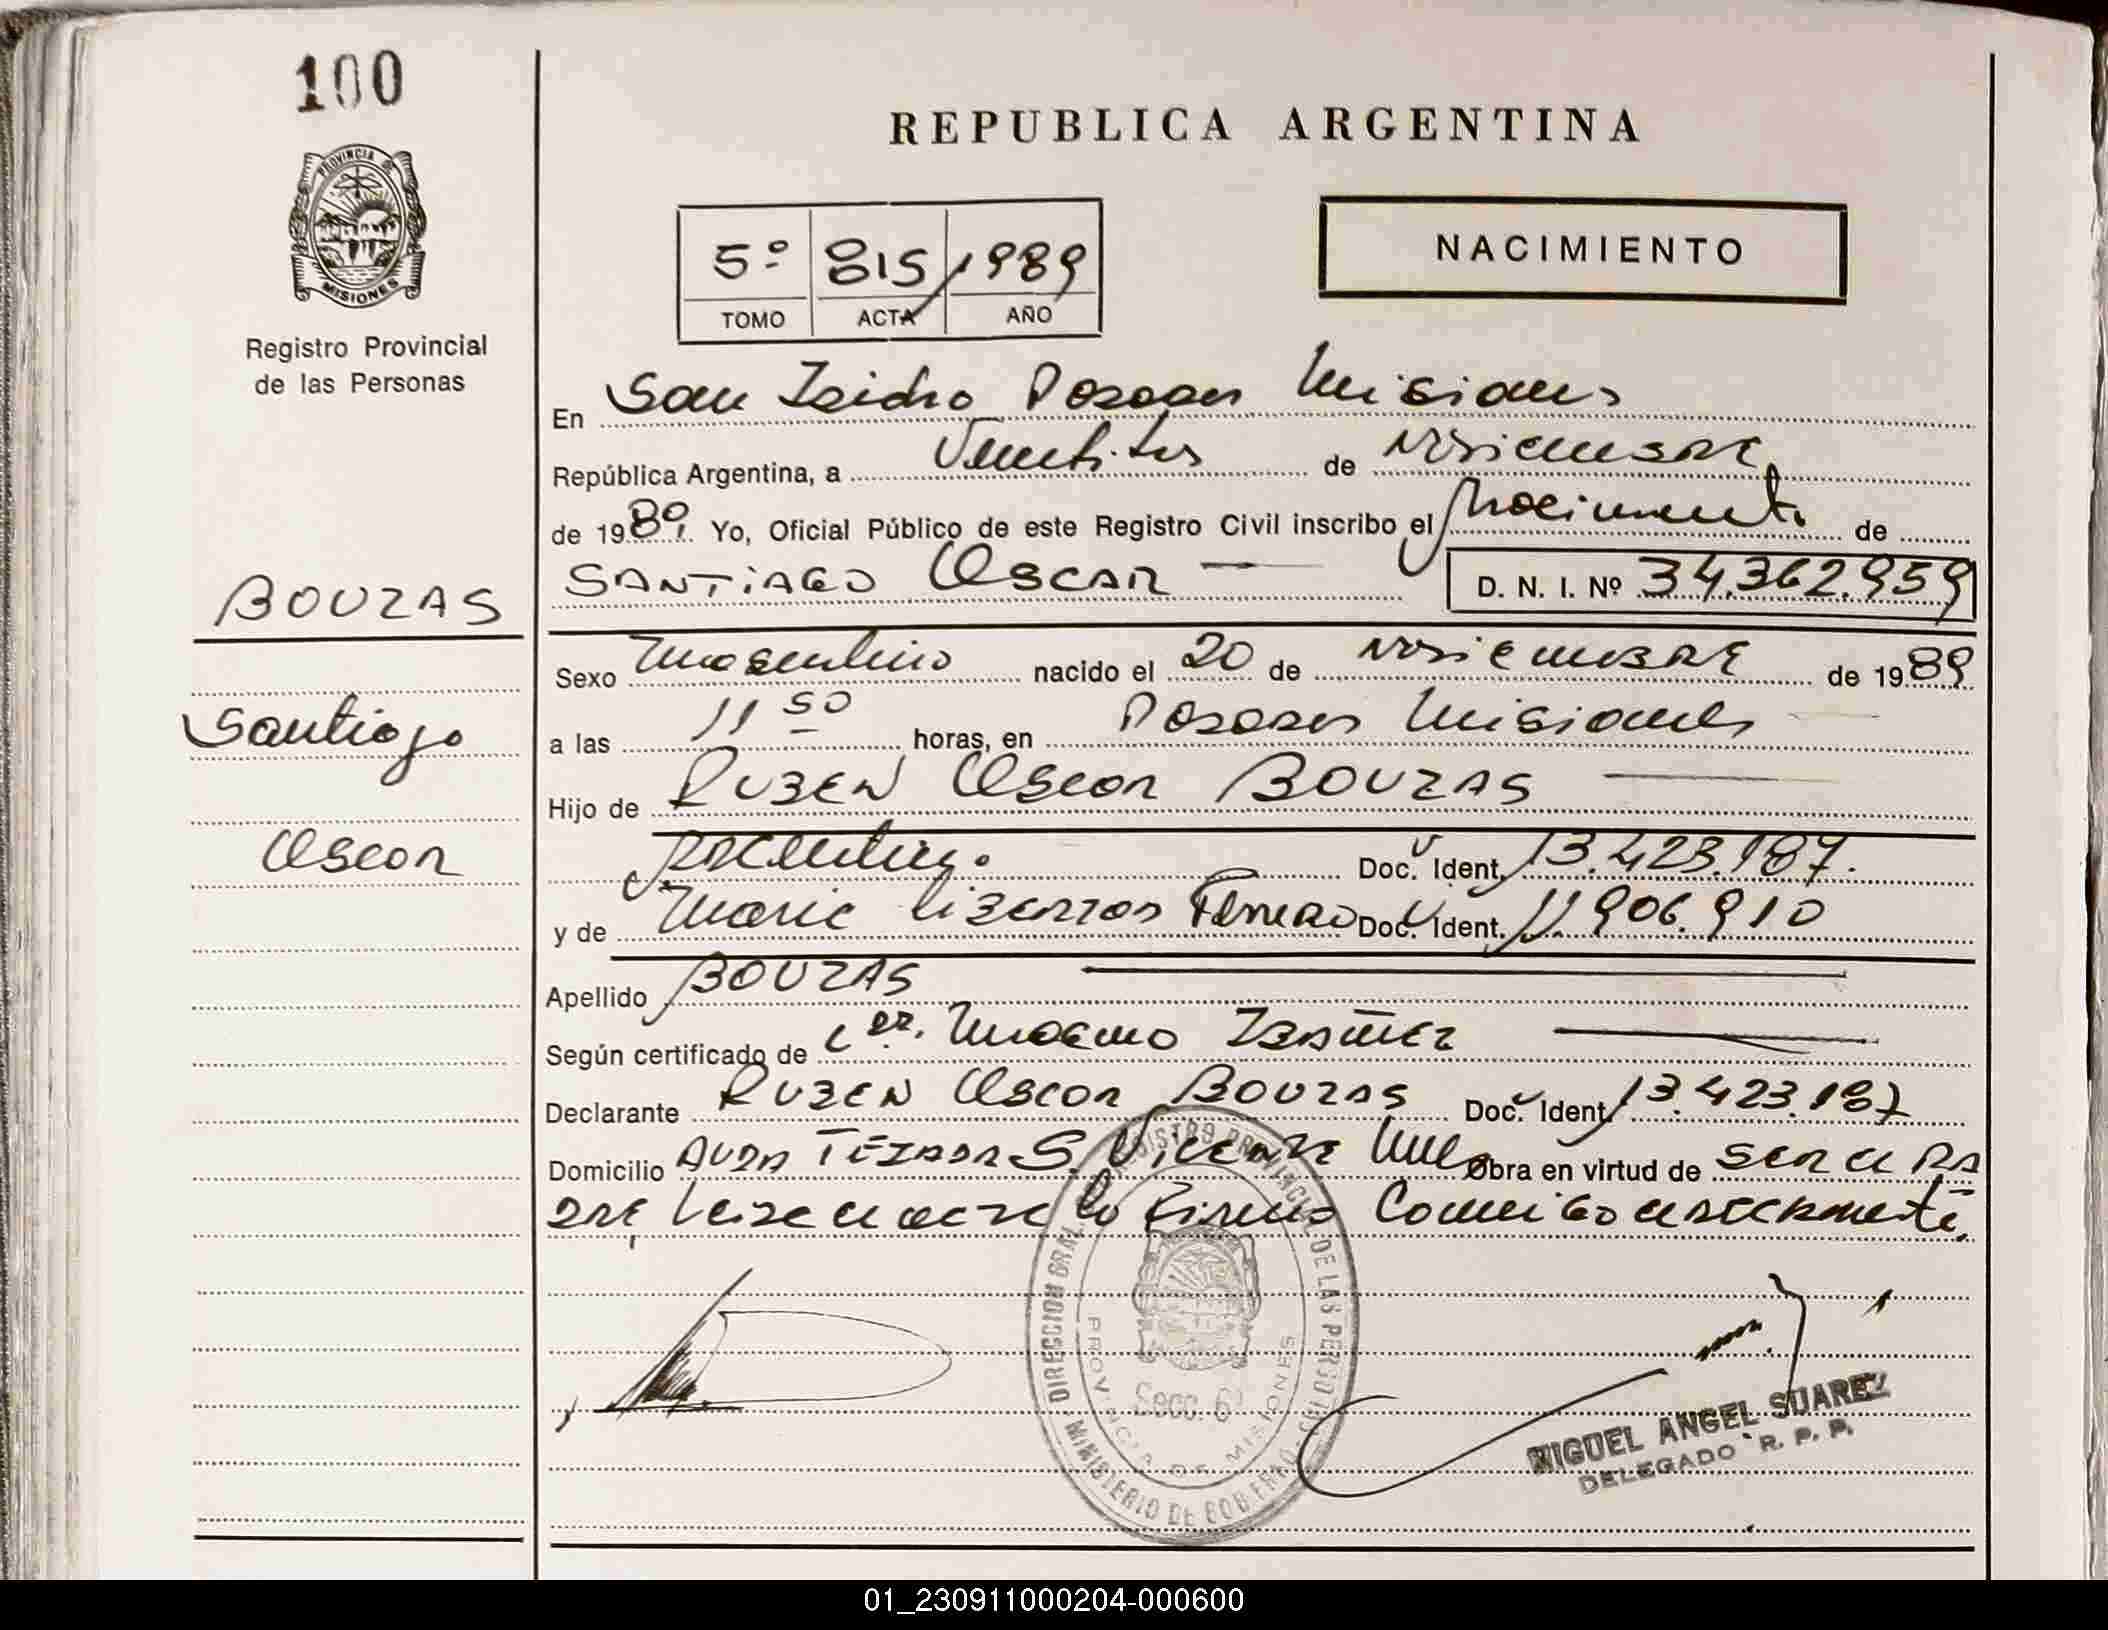 100
PROVINCIA
MISIONES
Registro Provincial
de las Personas
BOUZAS
Santiago
Oscar
REPUBLICA ARGENTINA
5º 815 / 1989
TOMO ACTA AÑO
NACIMIENTO
En San Isidro Posadas Misiones
República Argentina, a Veintitres de noviembre
de 1989. Yo, Oficial Público de este Registro Civil inscribo el Nacimiento de
SANTIAGO OSCAR — D. N. I. Nº 34.362.959
Sexo Masculino nacido el 20 de noviembre de 1989
a las 11 50 horas, en Posadas Misiones
Hijo de RUBEN Oscar BOUZAS
argentino. Doc. Ident. 13.423.187.
y de Doc. Ident. 11.906.910
Apellido BOUZAS
Según certificado de
Declarante RUBEN Oscar BOUZAS Doc. Ident. 13.423.187
Domicilio AVDA S. Vicente Obra en virtud de SER el PA
DRE leida el acta la firma Conmigo
DIRECCION GRAL. REGISTRO PROVINCIAL DE LAS PERSONAS
MINISTERIO DE GOBIERNO
PROVINCIA DE MISIONES
Secc. 6
MIGUEL ANGEL SUAREZ
DELEGADO R. P. P.
01_230911000204-000600